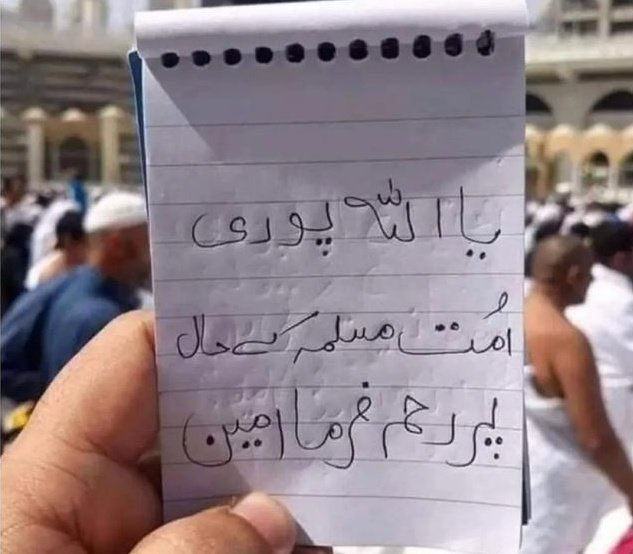 یا اللہ پوری
اُمت مسلمہ کے حال
پر رحم فرما امین